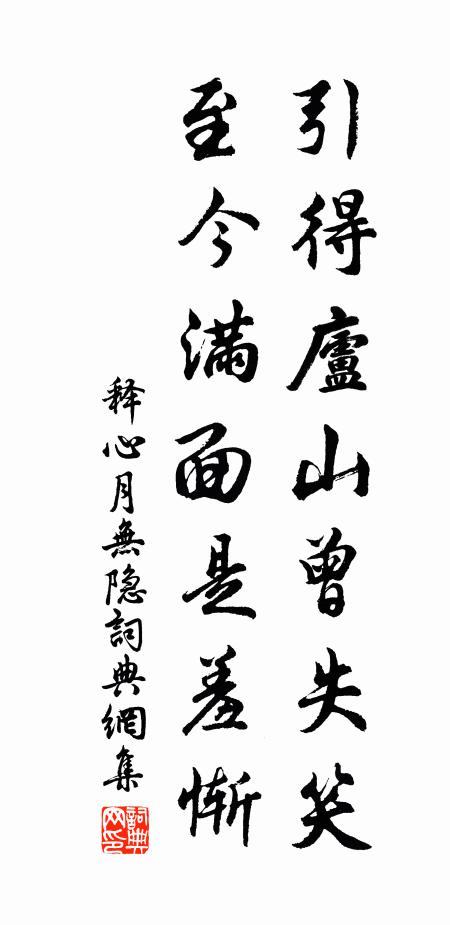 引得廬山曾失笑
至今滿面是羞慚
释心月無隐詞典網集
詞典网印